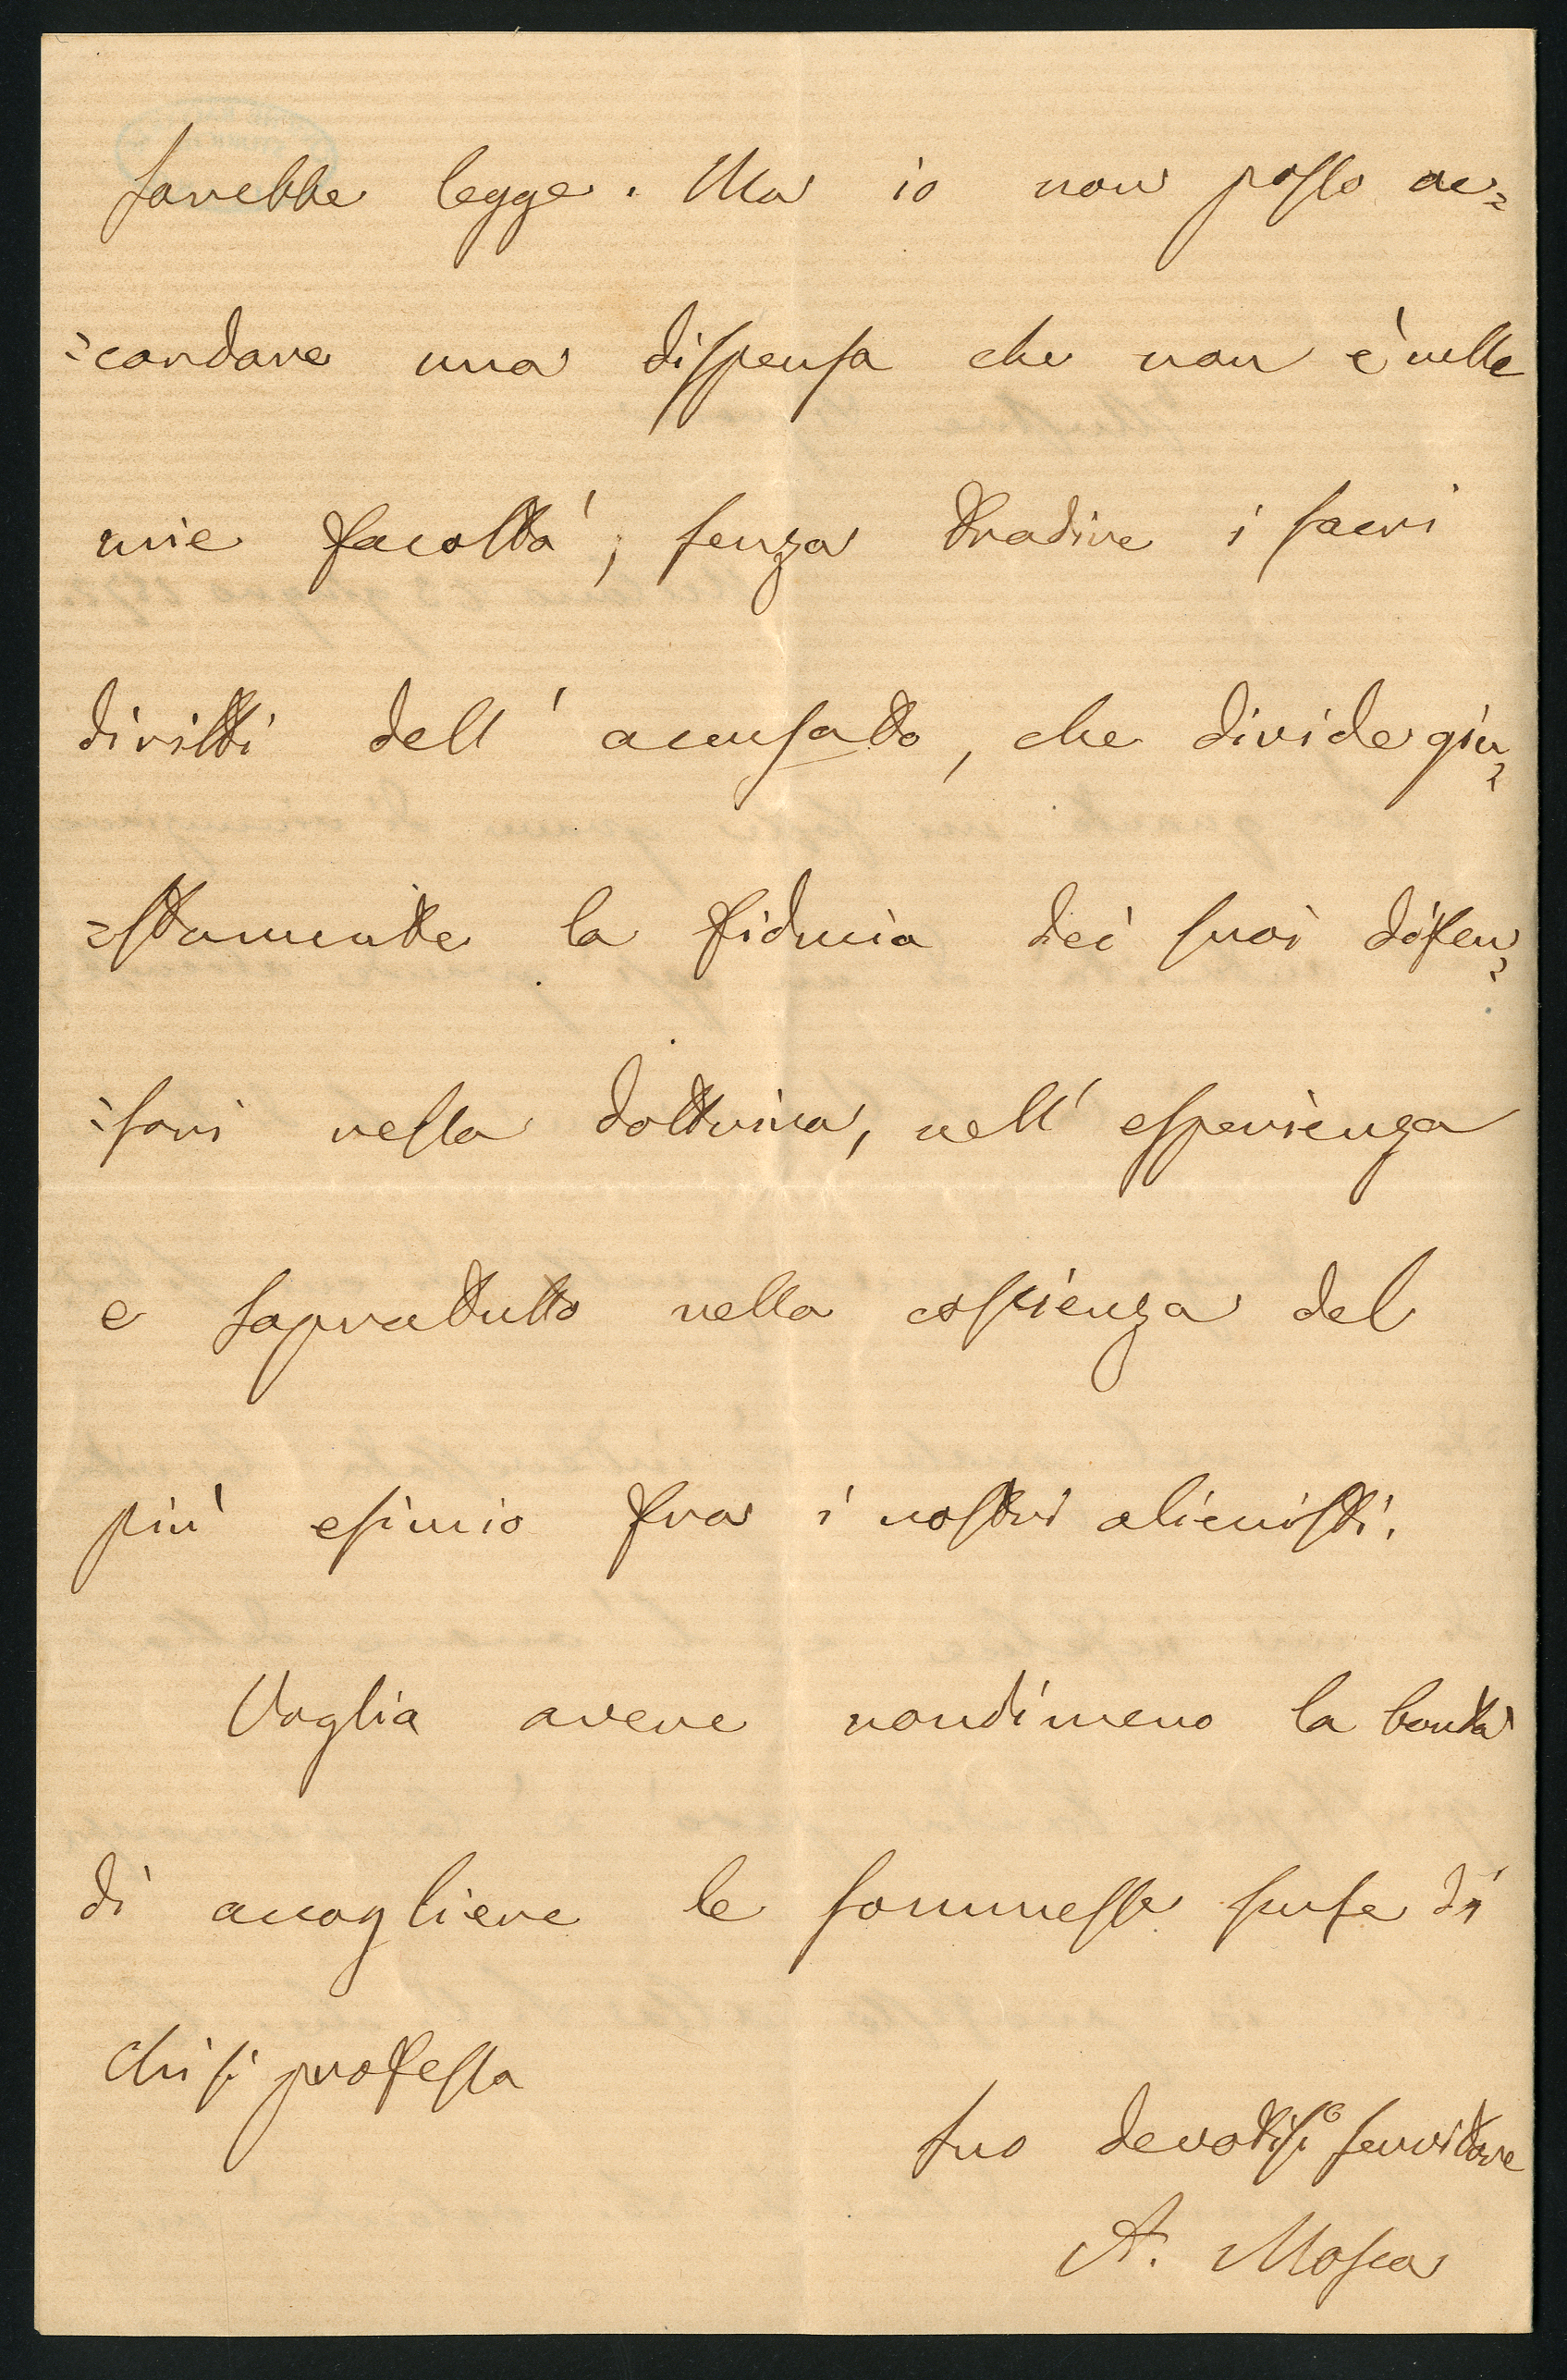 sarebbe legge. Ma io non posso ac=
=cordare una dispensa che non è nelle
mie facoltà, senza tradire i sacri
diritti dell' accusato, che divide giu=
=stamente la fiducia dei suoi difen=
=sori nella dottrina, nell' esperienza
e sopratutto nella coscienza del
più esimio fra i nostri alienisti.
Voglia avere nondimeno la bontà
di accogliere le sommesse scuse di
chi si professa
suo devotiss.o servitore
A. Mosca